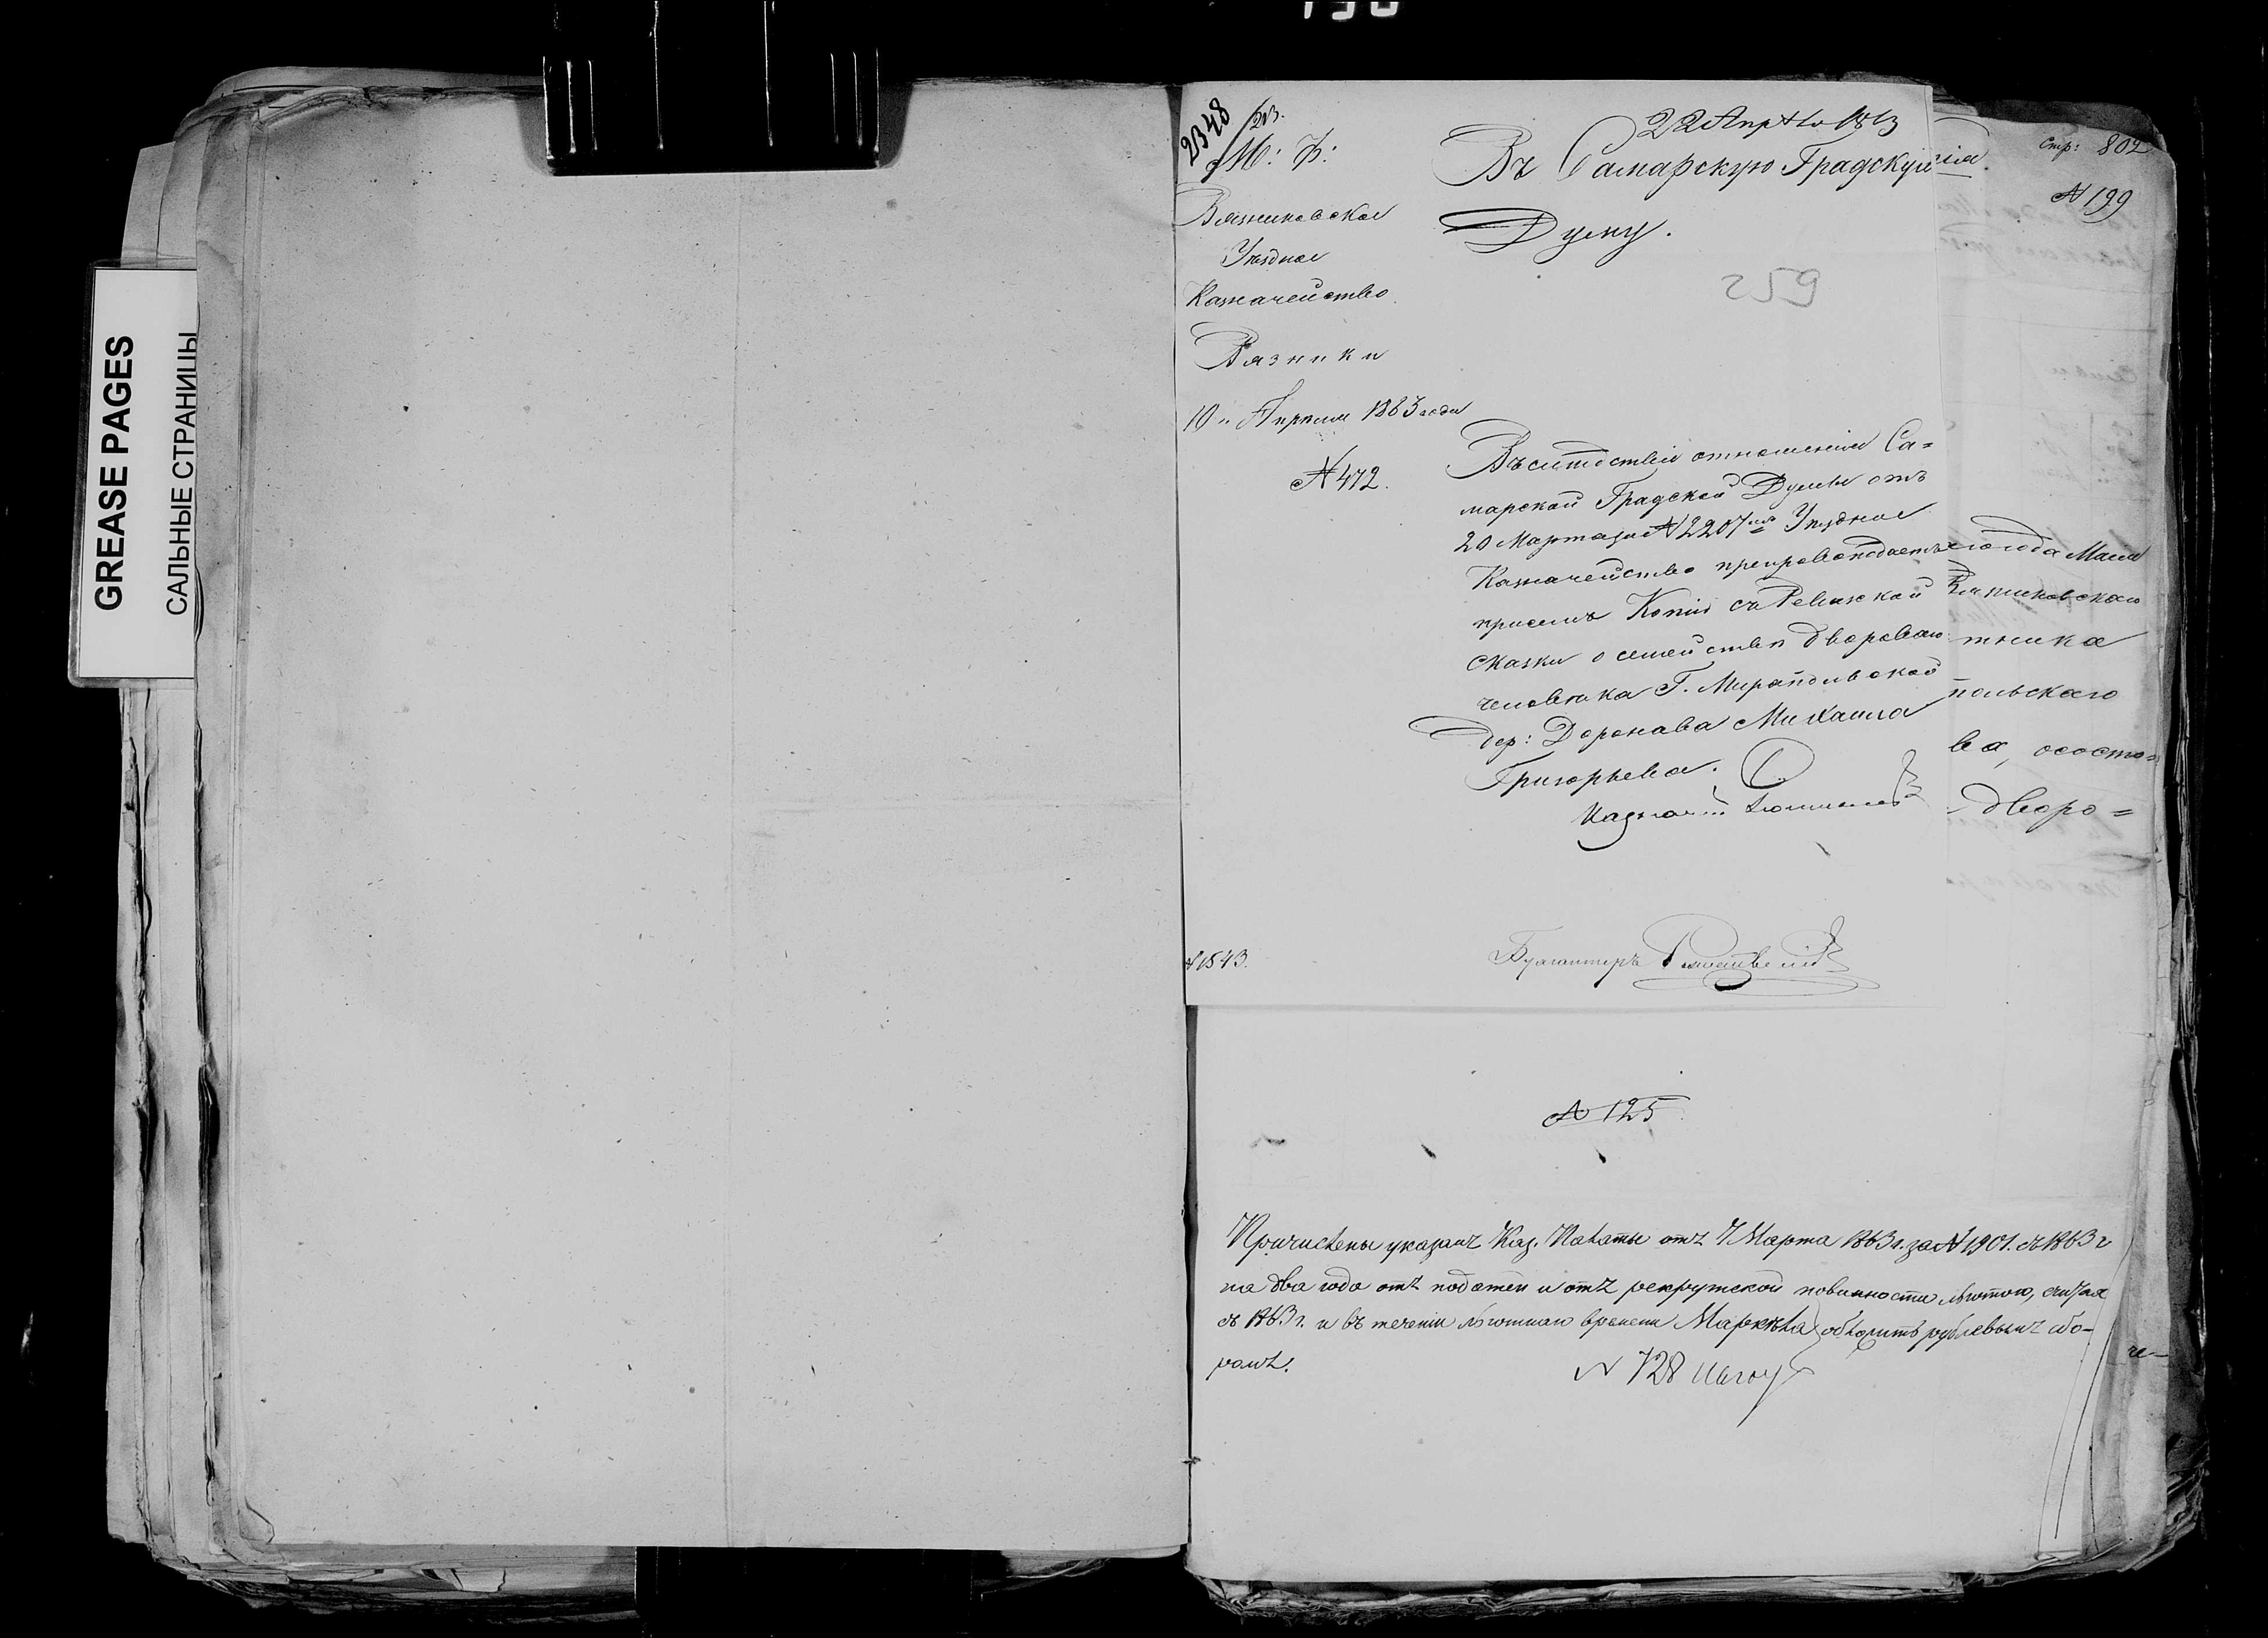 GREASE PAGES
САЛЬНЫЕ СТРАНИЦЫ
2348
М: Ф:
Вязниковское
Уѣздное
Казначейство
Вязники
10 Апрѣля 1863 года
№ 472.
22 Апрѣля 1863
Въ Самарскую Градскую
Думу.
259
Стр: 802
№ 199
Въслѣдствіе отношенія Са=
марской Градской Думы отъ
20 Марта за № 2207 Уѣздное
Казначейство препровождаетъ
присемъ Копію съ Ревизской
Сказки о семействѣ двороваго
человѣка Г. Мирапольской
дер: Доронава Михаила
Григорьева.
Казначей
Бухгалтеръ
№ 1543.
года Мая
Вязниковскаго
тника
польскаго
ва, ососто=
дворо=
№ 125
Причислены указомъ Каз. Палаты отъ 7 Марта 1863 г. за № 1901. съ 1863 г
на два года отъ податей и отъ рекрутской повинности льготою, считая
съ 1863 г. и въ теченіи льготнаго времени Маркѣла обложить рублевымъ сбо-
ромъ.
№ 728
че-